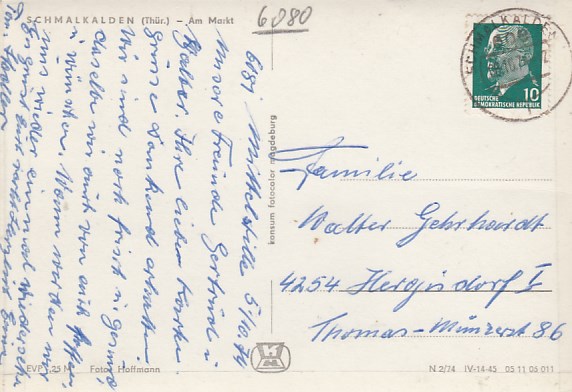 6080
SCHMALKALDEN (Thür.) – Am Markt
6081 Mittelstille 5/10.74
Unsere Freunde Gertrud u
Walter. Ihre lieben
Grüsse dankend erhalten
Wir sind noch frisch u. gesund
dasselbe wir auch von euch hoffen
u. wünschen. Wann werden wir
uns wieder einmal wiedersehen
Es grüßt euch
konsum fotocolor magdeburg
DEUTSCHE
DEMOKRATISCHE REPUBLIK
10
SCHMALKALDEN
Familie
Walter Gehrhardt
4254 Hergisdorf I
Thomas-Münzerst 86
EVP -,25 M Foto: Hoffmann
N 2/74 IV-14-45 05 11 05 011